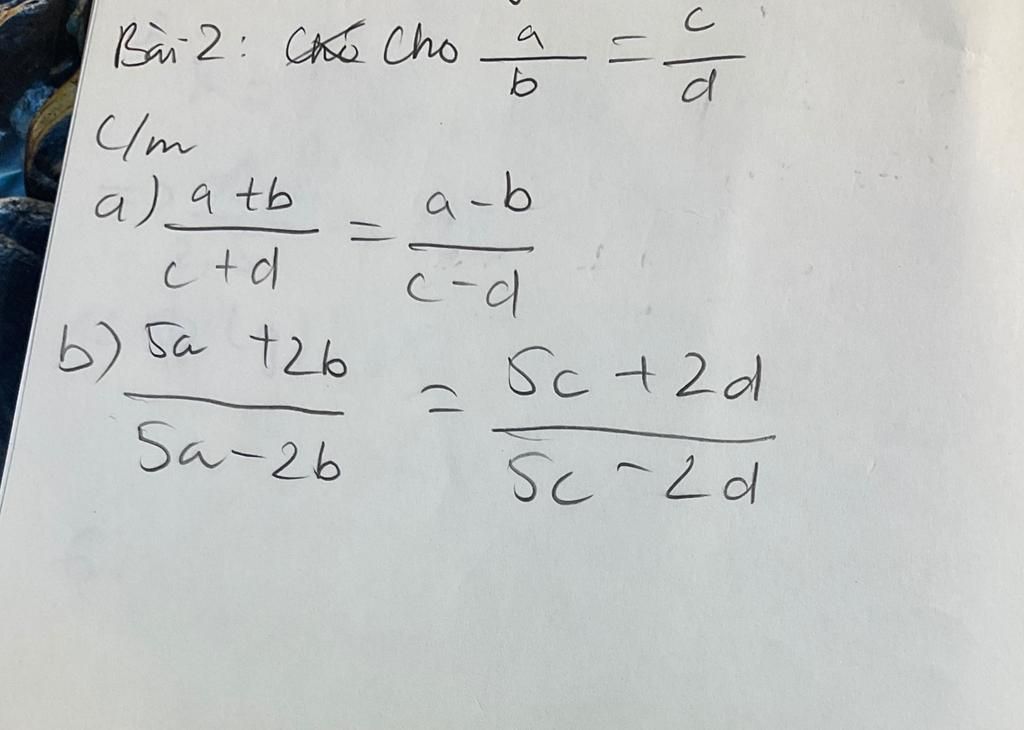 Bài 2: Cho a/b = c/d
C/m
a) (a+b)/(c+d) = (a-b)/(c-d)
b) (5a+2b)/(5a-2b) = (5c+2d)/(5c-2d)